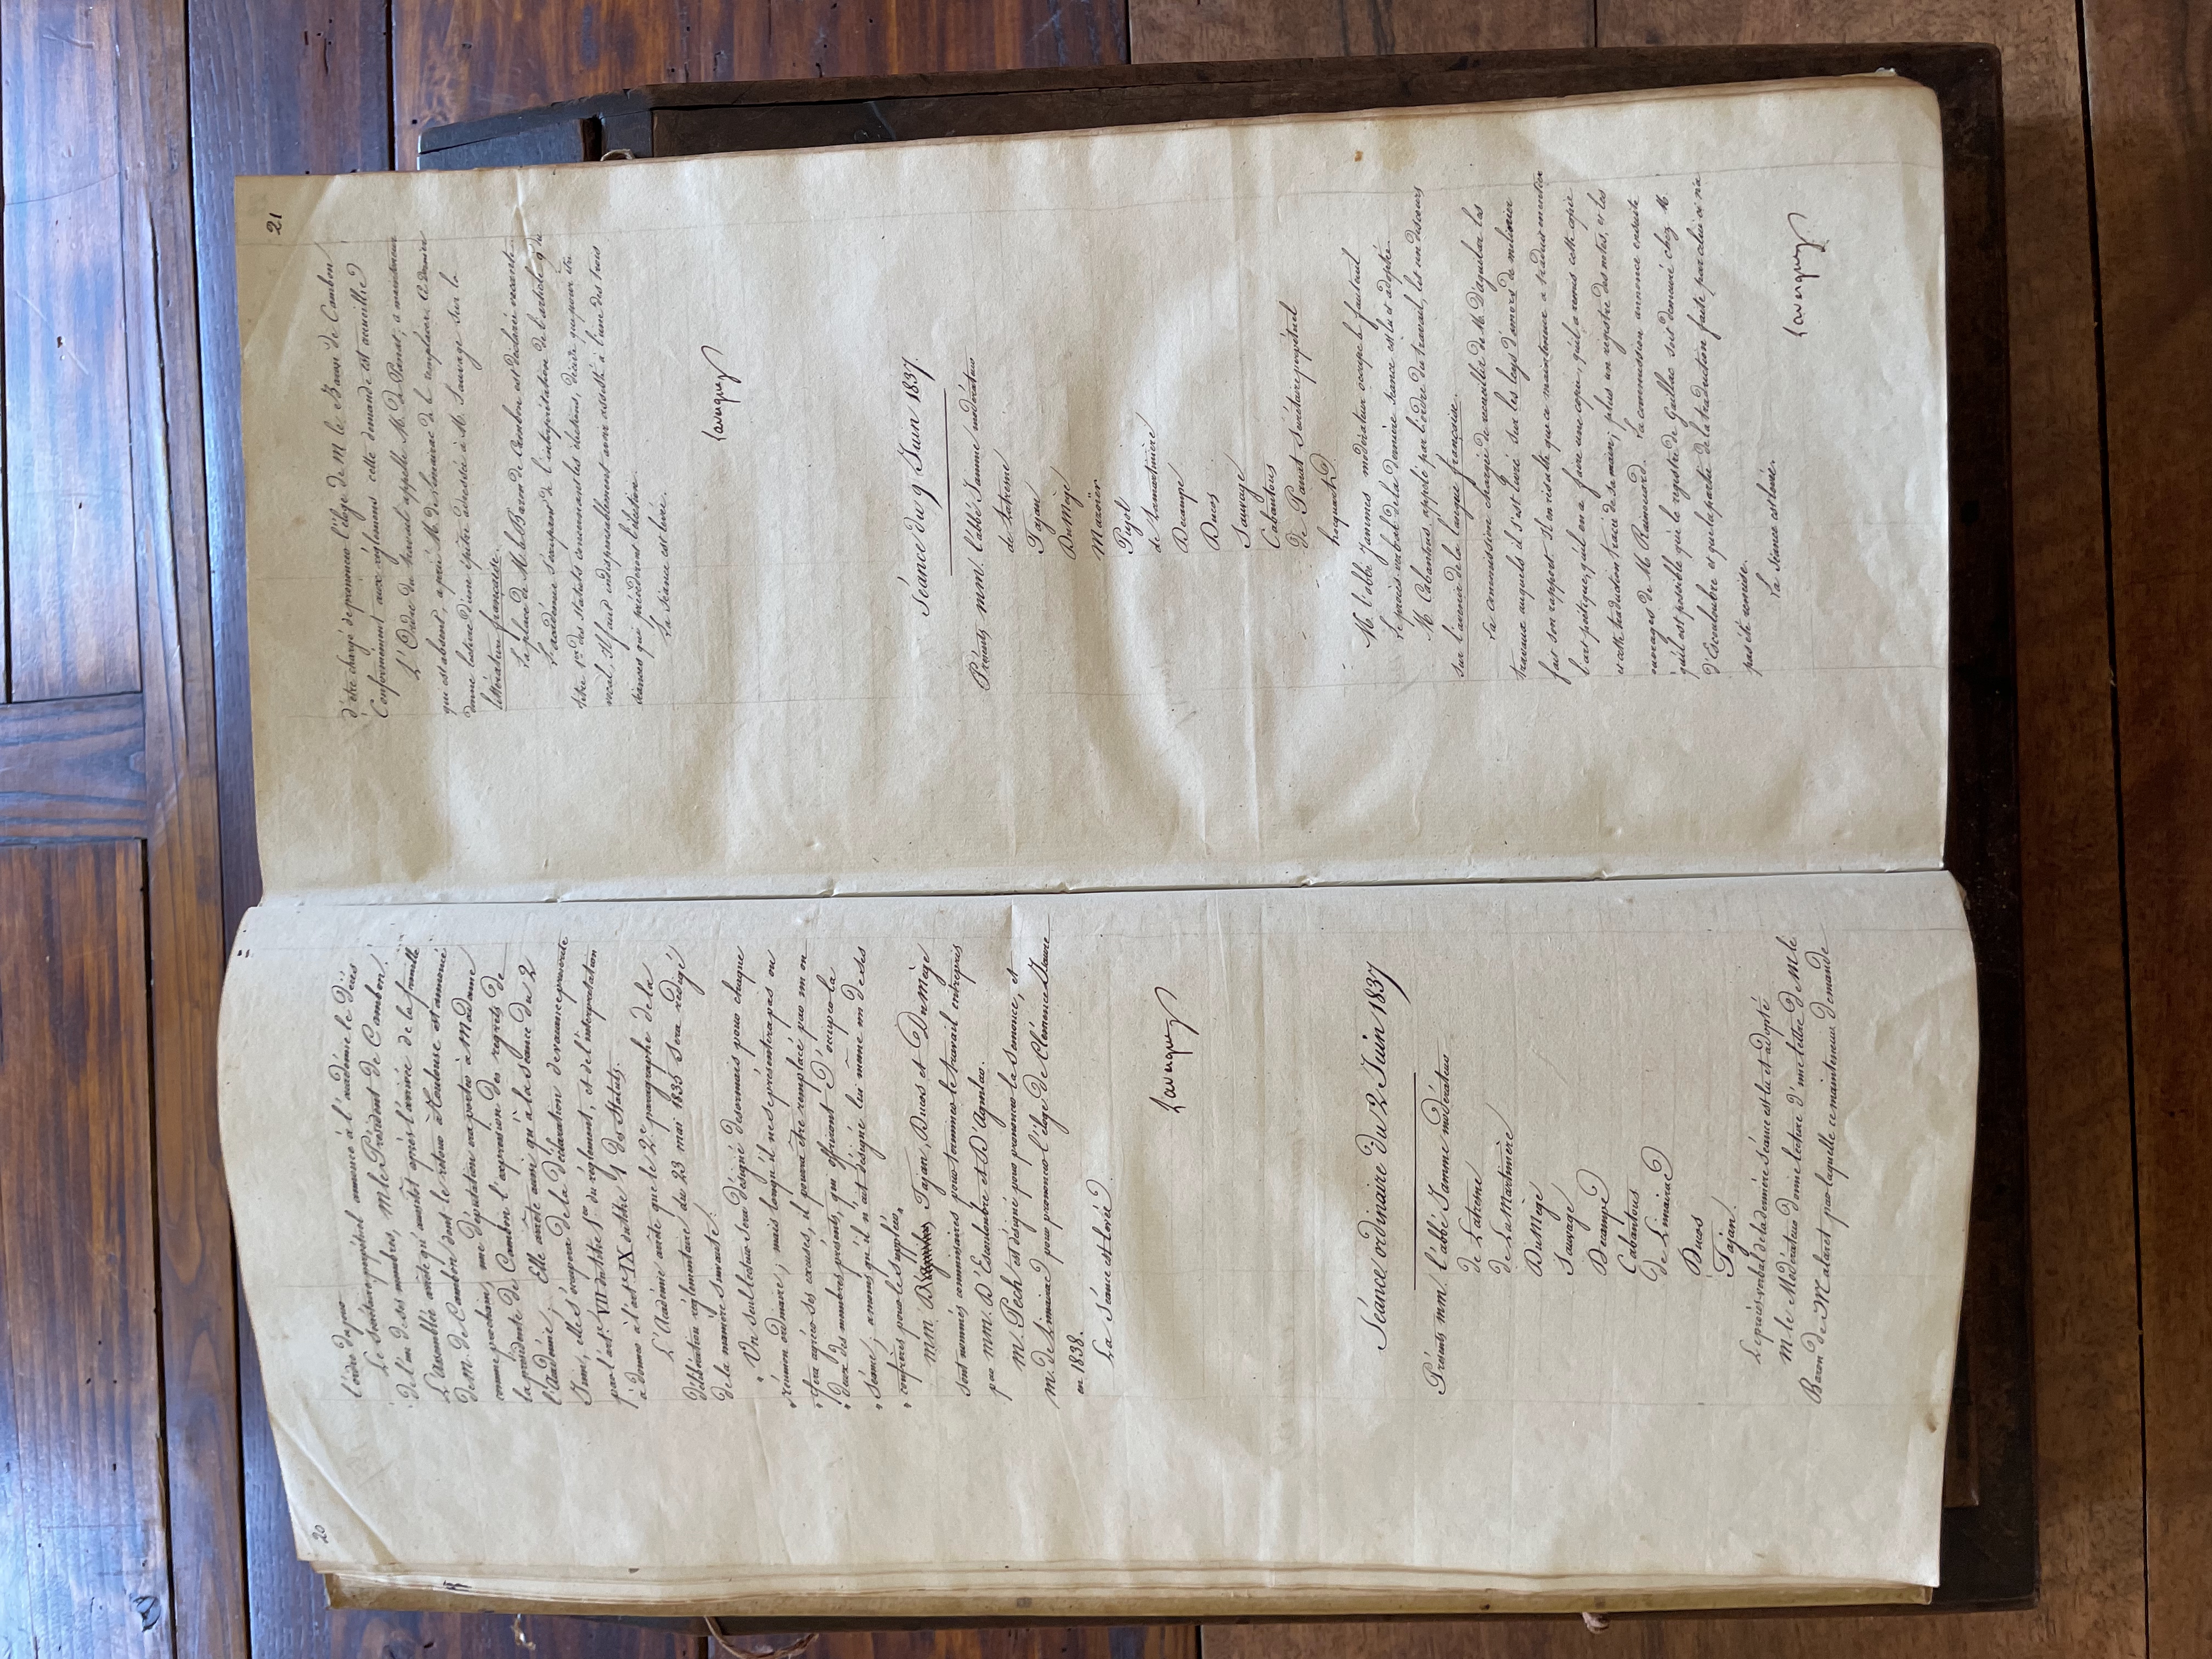 20
l'ordre du jour.
Le Secrétaire perpétuel annonce à l'académie le décès
de l'un de ses membres, M. le Président de Cambon.
L'Assemblée arrête qu'aussitôt après l'arrivée de la famille
de M. de Cambon dont le retour à Toulouse est annoncé
comme prochain, une députation ira porter à Madame
la présidente de Cambon l'expression des regrets de
l'Académie; Elle arrête aussi qu'à la séance du 2
Juin, elle s'occupera de la déclaration de vacance prescrite
par l'art. VII du titre 1er du règlement, et de l'interprétation
à donner à l'art. IX du titre 4 des Statuts.
L'Académie arrête que le 2e paragraphe de la
délibération réglementaire du 23 mai 1835 sera rédigé
de la manière suivante:
" Un seul lecteur sera désigné désormais pour chaque
" réunion ordinaire; mais lorsqu'il ne se présentera pas ou
" fera agréer ses excuses, il pourra être remplacé par un ou
" deux des membres présents, qui offriront d'occuper la
" séance; à moins qu'il n'ait désigné lui même un de ses
" confrères pour le suppléer"
MM. Tajan, Ducos et Dumège
sont nommés commissaires pour terminer le travail entrepris
par MM. D'Escouloubre et D'Aguilar.
M. Pech est désigné pour prononcer la Semonce, et
M. de Limairac pour prononcer l'éloge de Clémence Isaure
en 1838.
La Séance est levée.
Lavergne
Séance ordinaire du 2 Juin 1837
Présents MM. l'abbé Jamme modérateur
de Latresne
de La Martinière
DuMège
Sauvage
Decampe
Cabantous
de Limairac
Ducos
Tajan.
Le procès verbal de la dernière Séance est lu et adopté
M. le Modérateur donne lecture d'une lettre de M. le
Baron de Malaret par laquelle ce mainteneur demande
21
d'être chargé de prononcer l'éloge de M. le Baron de Cambon
Conformément aux règlemens cette demande est accueillie
L'Ordre du travail appelle M. de Panat; ce mainteneur
qui est absent, a prié M. de Limairac de le remplacer. Ce dernier
donne lecture d'une épître adressée à M. Sauvage sur la
littérature française.
La place de M. le Baron de Cambon est déclarée vacante
L'académie s'occupant de l'interprétation de l'article 9 du
titre 1er des Statuts concernant les élections, décide que pour être
vocal, il faut indispensablement avoir assisté à l'une des trois
séances qui précèderont l'élection.
La séance est levée.
Lavergne
Séance du 9 Juin 1837.
Présents MM. l'abbé Jamme modérateur
de Latresne
Tajan
DuMège
Mazoïer
Pujol
de Lamartinière
Decampe
Ducos
Sauvage
Cabantous
de Panat Secrétaire perpétuel
hocquart
M. l'abbé Jammes modérateur occupe le fauteuil
Le procès verbal de la dernière séance est lu et adopté.
M. Cabantous appelé par l'ordre du travail, lit un discours
sur l'avenir de la langue française.
La commission chargée de recueillir de M. D'aguilar les
travaux auxquels il s'est livré sur les leys d'amors de moliner
fait son rapport. Il en résulte que ce mainteneur a traduit en entier
l'art poétique, qu'il en a faire une copie, qu'il a remis cette copie
et cette traduction tracée de sa main; plus un registre des notes, et les
ouvrages de M. Rainouard. La commission annonce ensuite
qu'il est possible que le registre de Gaillac soit demeuré chez M.
d'Escouloubre et que la partie de la traduction faite par celui ci n'a
pas été remise.
La Séance est levée.
Lavergne